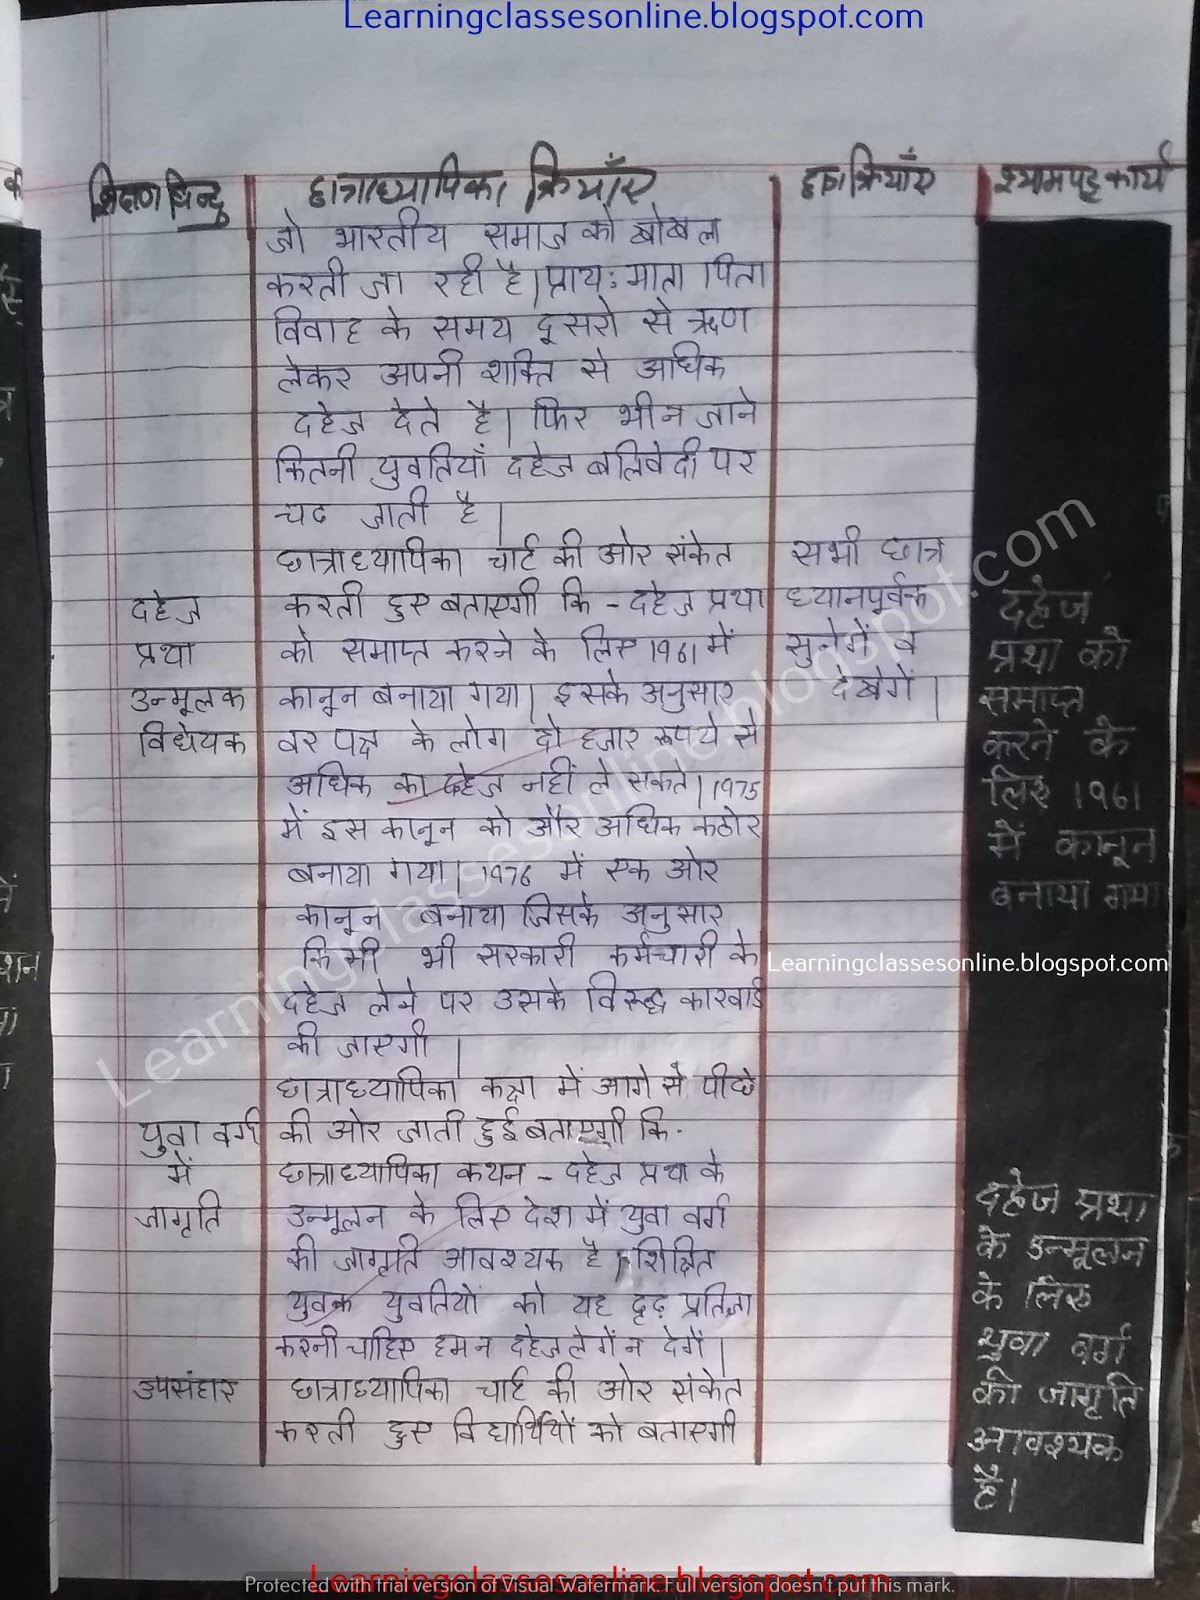 Learningclassesonline.blogspot.com
शिक्षण बिन्दु
छात्राध्यापिका क्रियाएँ
छात्र क्रियाएँ
श्यामपट्ट कार्य
जो भारतीय समाज को खोखला
करती जा रही है। प्राय: माता पिता
विवाह के समय दूसरो से ऋण
लेकर अपनी शक्ति से अधिक
दहेज देते है। फिर भी न जाने
कितनी युवतियाँ दहेज बलिवेदी पर
चढ जाती है।
छात्राध्यापिका चार्ट की ओर संकेत
करती हुए बताएगी कि - दहेज प्रथा
को समाप्त करने के लिए 1961 में
कानून बनाया गया। इसके अनुसार
वर पक्ष के लोग दो हजार रूपये से
अधिक का दहेज नहीं ले सकते। 1975
में इस कानून को और अधिक कठोर
बनाया गया। 1976 में एक ओर
कानून बनाया जिसके अनुसार
किसी भी सरकारी कर्मचारी के
दहेज लेने पर उसके विरूद्ध कारवाई
की जाएगी।
छात्राध्यापिका कक्षा में आगे से पीछे
की ओर जाती हुई बताएगी कि-
छात्राध्यापिका कथन - दहेज प्रथा के
उन्मूलन के लिए देश में युवा वर्ग
की जागृति आवश्यक है। शिक्षित
युवक युवतियों को यह दृढ़ प्रतिज्ञा
करनी चाहिए हम न दहेज लेगें न देगें।
छात्राध्यापिका चार्ट की ओर संकेत
करती हुए विद्यार्थियों को बताएगी
दहेज
प्रथा
उन्मूलक
विधेयक
युवा वर्ग
में
जागृति
उपसंहार
सभी छात्र
ध्यानपूर्वक
सुनेगें व
देखेगें।
दहेज
प्रथा को
समाप्त
करने के
लिए 1961
में कानून
बनाया गया
Learningclassesonline.blogspot.com
दहेज प्रथा
के उन्मूलन
के लिए
युवा वर्ग
की जागृति
आवश्यक
है।
Learningclassesonline.blogspot.com
Learningclassesonline.blogspot.com
Protected with trial version of Visual Watermark. Full version doesn't put this mark.